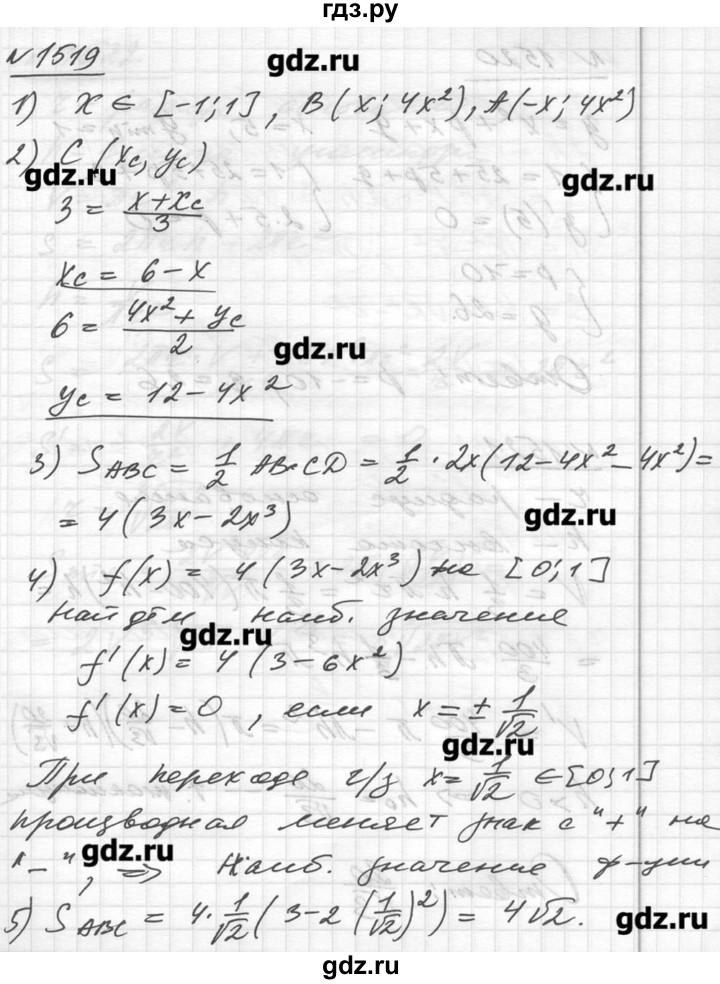 гдз.ру
N 1519
gdz.ru
1) x ∈ [-1;1], B(x; 4x²), A(-x; 4x²)
2) C (xc, yc)
gdz.ru
gdz.ru
3 = (x+xc)/3
xc = 6-x
6 = (4x²+yc)/2
gdz.ru
yc = 12-4x²
3) S ABC = 1/2 AB·CD = 1/2 · 2x(12-4x²-4x²) =
= 4(3x-2x³)
gdz.ru
4) f(x) = 4(3x-2x³) на [0;1]
найдём наиб. значение
gdz.ru
f'(x) = 4(3-6x²)
f'(x)=0, если x = ± 1/√2
gdz.ru
При переходе ч/з x = 1/√2 ∈ [0;1]
производная меняет знак с "+" на
"-", => наиб. значение ф-ции
gdz.ru
5) S ABC = 4·1/√2 (3-2(1/√2)²) = 4√2.
gdz.ru
gdz.ru